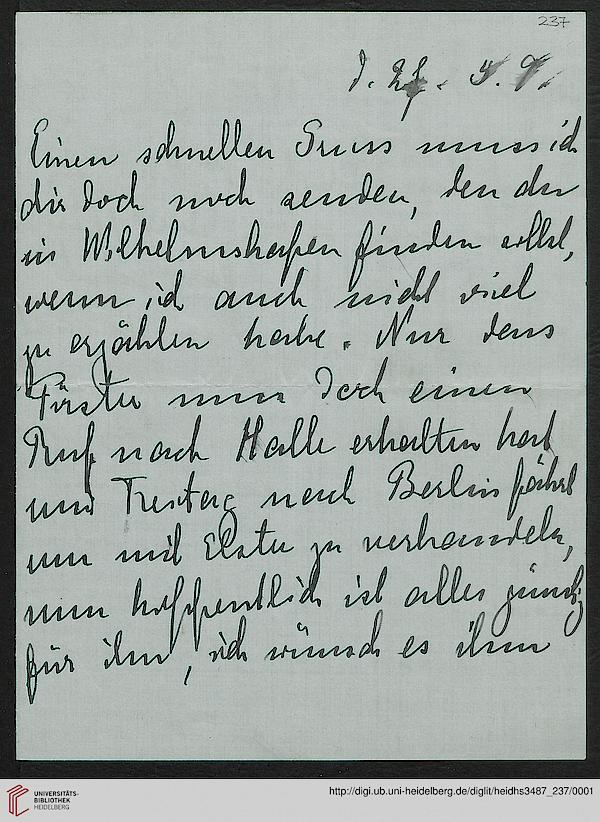 237
d. 27. 4. 9.
Einen schnellen Gruss muss ich
dir doch noch senden, den du
in Wilhelmshafen finden sollst,
wenn ich auch nicht viel
zu erzählen habe. Nur dass
Förster nun doch einen
Ruf nach Halle erhalten hat
und Freitag nach Berlin fährt
um mit Elster zu verhandeln,
nun hoffentlich ist alles günstig
für ihn, ich wünsch es ihm
UNIVERSITÄTS-
BIBLIOTHEK
HEIDELBERG
http://digi.ub.uni-heidelberg.de/diglit/heidhs3487_237/0001